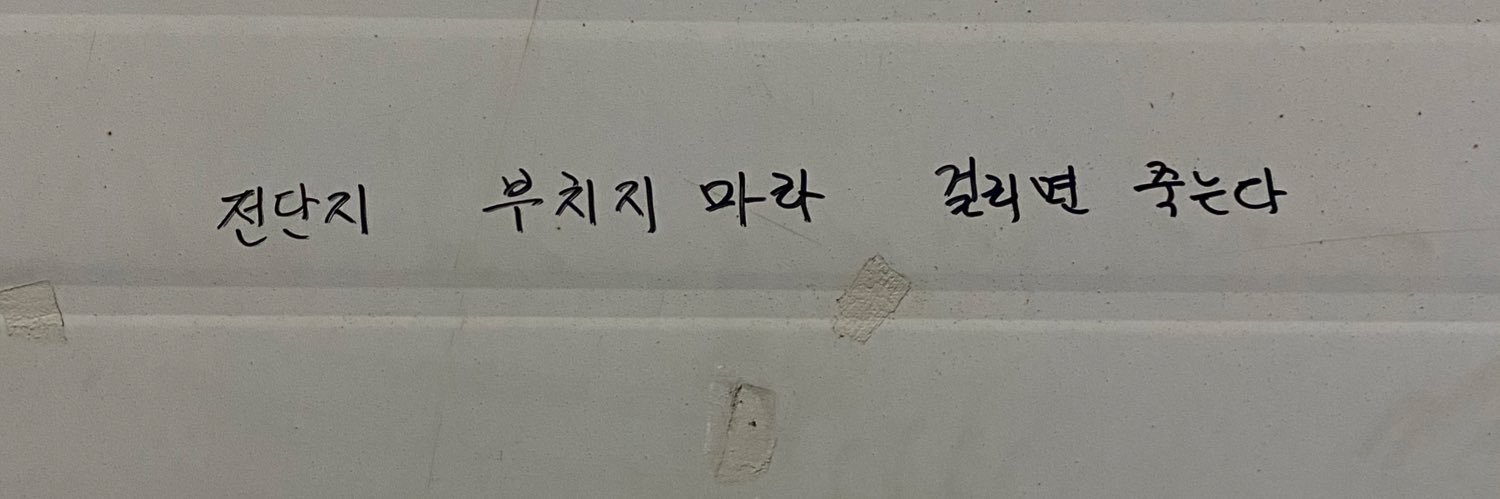 전단지 부치지 마라 걸리면 죽는다